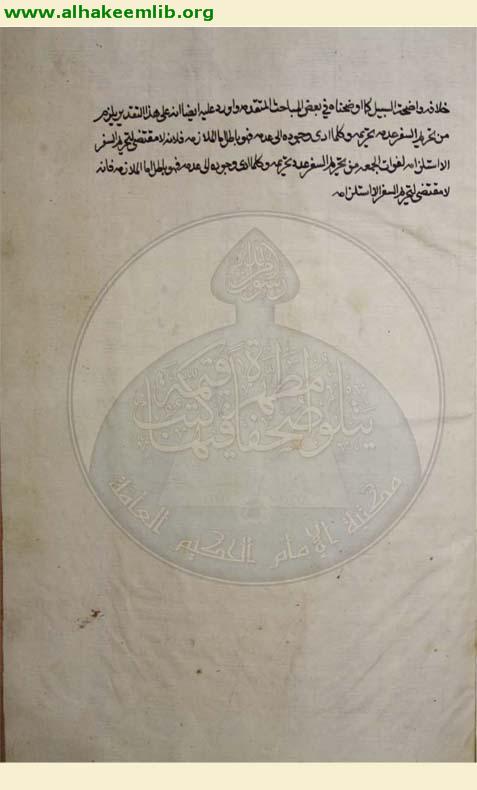 www.alhakeemlib.org
خلافه واضحة السبيل كما اوضحناه في بعض المباحث المتقدمه واورد عليه ايضا انه على هذا التقدير يلزم
من تحريم السفر عدم تحريمه وكلما ادى وجوده الى عدمه فهو باطل اما الملازمه فلانه لا مقتضى لتحريم السفر
الا استلزامه لفوات الجمعه من تحريم السفر عدم تحريمه وكلما ادى وجوده الى عدمه فهو باطل اما الملازمه فانه
لا مقتضى لتحريم السفر الا استلزامه
رسول من الله
يتلو صحفا مطهرة فيها كتب قيمة
مكتبة الإمام الحكيم العامة